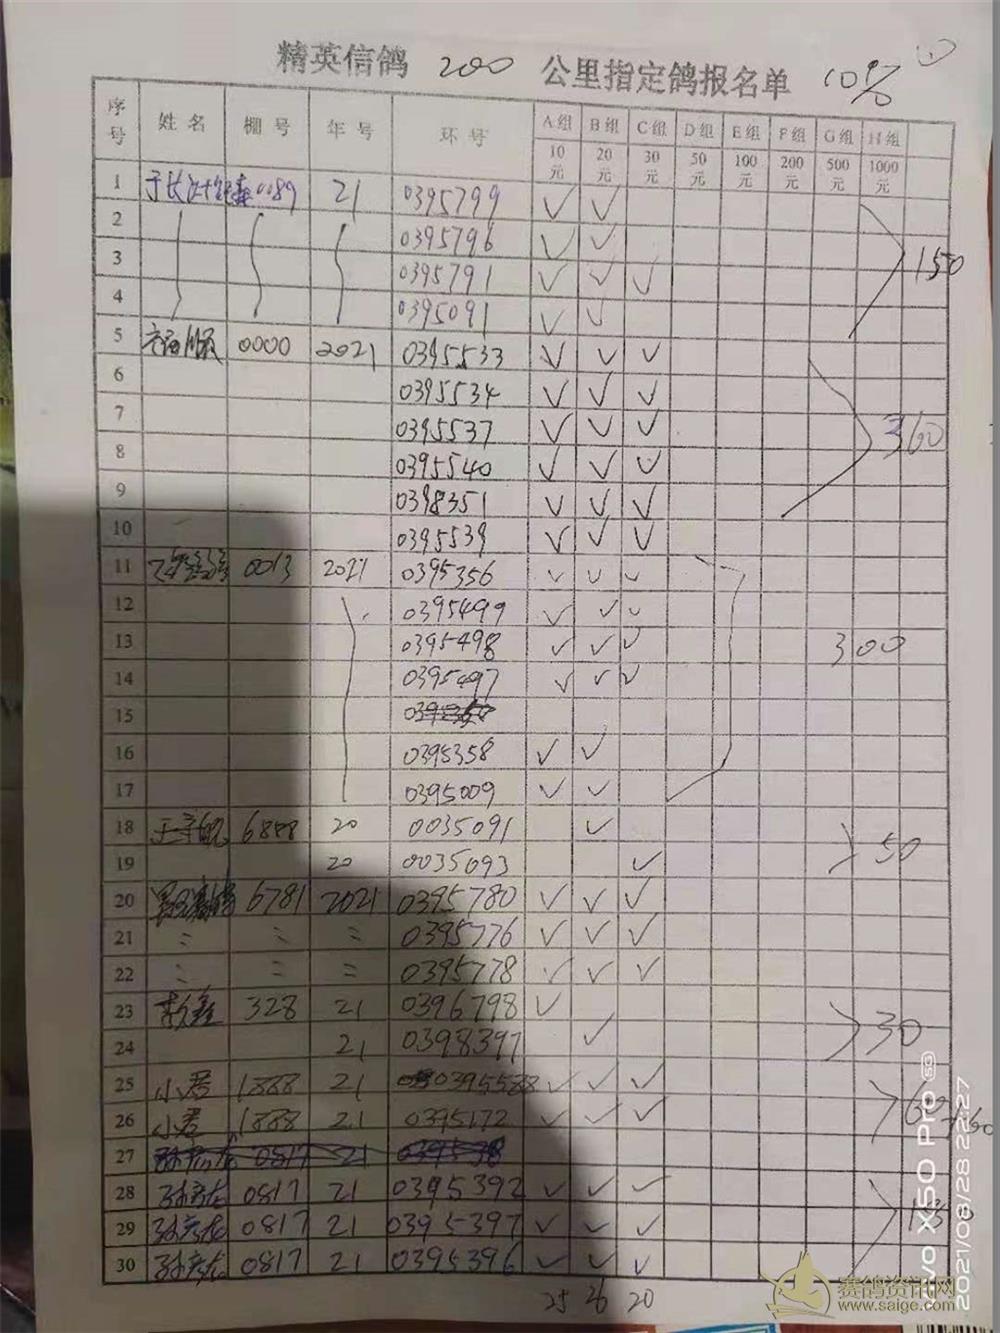 精英信鸽 200 公里指定鸽报名单 10%
序号 姓名 棚号 年号 环号 A组 B组 C组 D组 E组 F组 G组 H组
10元 20元 30元 50元 100元 200元 500元 1000元
1 0089 21 0395799 ✓ ✓
2 0395796 ✓ ✓
3 0395791 ✓ ✓ ✓ 150
4 0395091 ✓ ✓
5 0000 2021 0395533 ✓ ✓ ✓
6 0395534 ✓ ✓ ✓
7 0395537 ✓ ✓ ✓ 360
8 0395540 ✓ ✓ ✓
9 0398351 ✓ ✓ ✓
10 0395539 ✓ ✓ ✓
11 0013 2021 0395356 ✓ ✓ ✓
12 0395499 ✓ ✓ ✓
13 0395498 ✓ ✓ ✓ 300
14 0395497 ✓ ✓ ✓
15
16 0395358 ✓ ✓
17 0395009 ✓ ✓
18 6888 20 0035091 ✓
19 20 0035093 ✓ 50
20 6781 2021 0395780 ✓ ✓ ✓
21 〃 〃 〃 0395776 ✓ ✓ ✓
22 〃 〃 〃 0395778 ✓ ✓ ✓
23 李鑫 328 21 0396798 ✓
24 21 0398397 ✓ 30
25 小君 1888 21 0395588 ✓ ✓ ✓
26 小君 1888 21 0395172 ✓ ✓ ✓
27 0817 21
28 孙彦龙 0817 21 0395392 ✓ ✓ ✓
29 孙彦龙 0817 21 0395397 ✓ ✓ ✓
30 孙彦龙 0817 21 0395396 ✓ ✓ ✓
25 26 20
vivo X50 Pro 5G
2021/08/28 22:27
赛鸽资讯网
www.saige.com